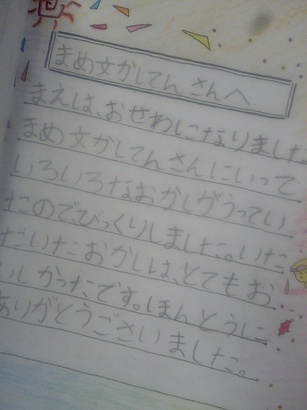 まめ文かしてん さんへ
まえは、おせわになりました
まめ文かしてん さんにいって
いろいろなおかしがうってい
たので、びっくりしました。いた
だいたおかしは、とてもお
いしかったです。ほんとうに
ありがとうございました。